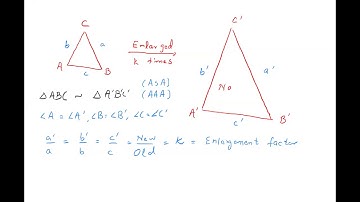 C
b a
A B
c
Enlarged
K times
C'
b' a'
No
A' B'
c'
△ABC ~ △A'B'C' (ASA)
(AAA)
∠A = ∠A', ∠B = ∠B', ∠C = ∠C'
a'/a = b'/b = c'/c = New/Old = K = Enlargement factor